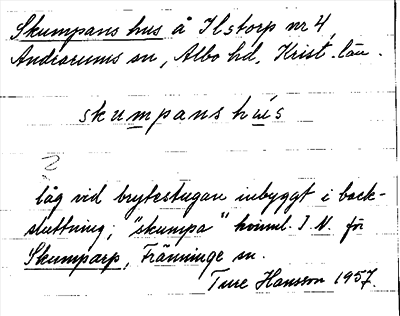 Skumpans hus å Ilstorp nr 4,
Andrarums sn, Albo hd, Krist. län.
skumpans hús
låg vid brytestugan inbyggt i back-
sluttning; "skumpa" homml. I N. för
Skumparp, Fränninge sn.
Ture Hansson 1957.